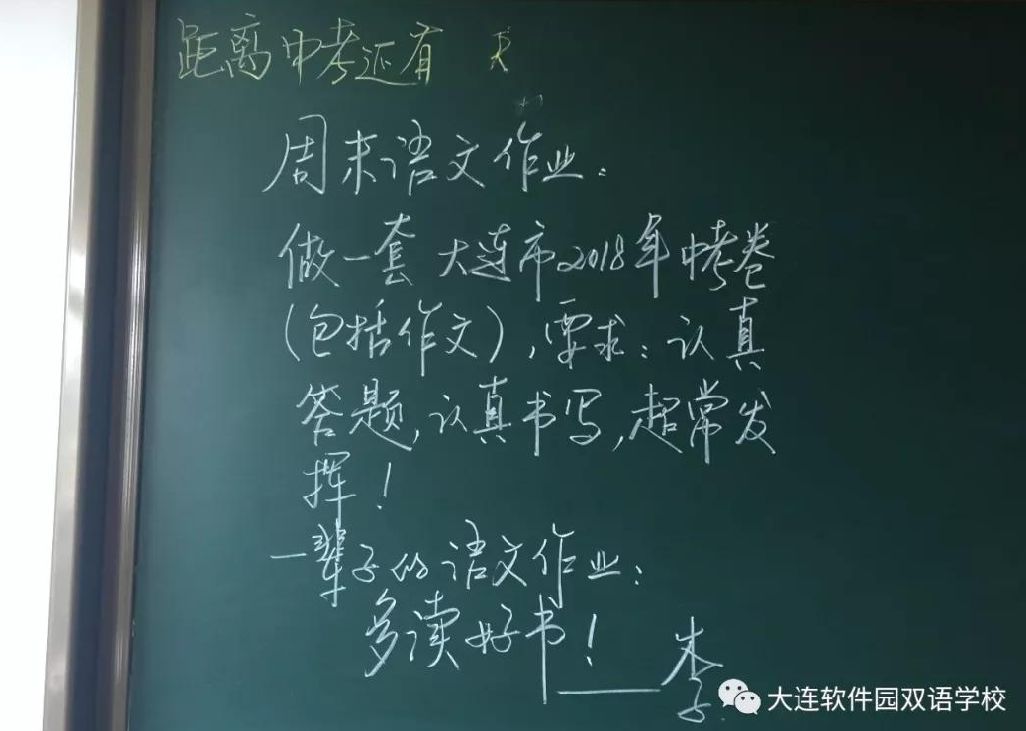 距离中考还有 天
周末语文作业:
做一套大连市2018年中考卷
(包括作文),要求:认真
答题,认真书写,超常发
挥!
一辈子的语文作业:
多读好书!
——李
大连软件园双语学校